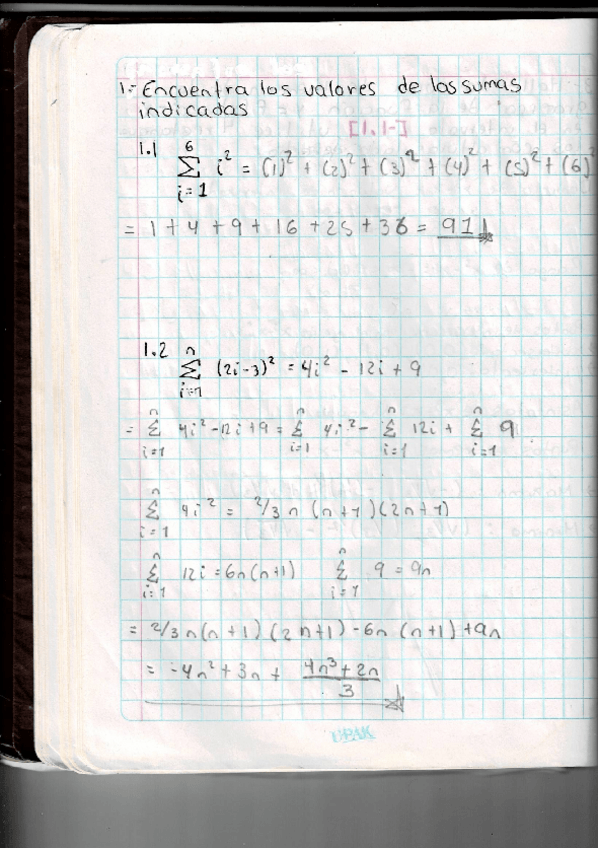 1.- Encuentra los valores de las sumas
indicadas
[1.1-]
1.1 6 Σ i=1 i² = (1)² + (2)² + (3)² + (4)² + (5)² + (6)²
= 1 + 4 + 9 + 16 + 25 + 36 = 91
1.2 n Σ i=1 (2i-3)² = 4i² - 12i + 9
= n Σ i=1 4i² - 12i + 9 = n Σ i=1 4i² - n Σ i=1 12i + n Σ i=1 9
n Σ i=1 4i² = 2/3 n (n+1)(2n+1)
n Σ i=1 12i = 6n(n+1) n Σ i=1 9 = 9n
= 2/3 n(n+1)(2n+1) - 6n (n+1) + 9n
= -4n² + 3n + 4n³ + 2n / 3
UPAK